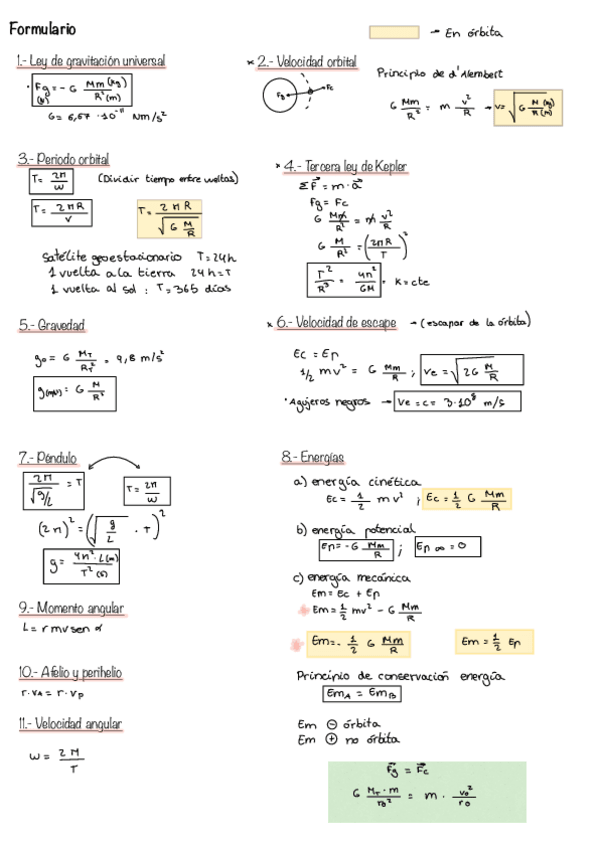 Formulario
→ En órbita
1.- Ley de gravitación universal
· Fg = - G Mm (kg) / R² (m)
(N)
G = 6,67 · 10⁻¹¹ N m/s²
* 2.- Velocidad orbital
Fg Fc
Principio de d'Alembert
G Mm/R² = m v²/R → v = √(G M (kg)/R (m))
3.- Periodo orbital
T = 2π/ω (Dividir tiempo entre vueltas)
T = 2πR/v T = 2πR/√(G M/R)
Satélite geoestacionario T = 24h
1 vuelta a la tierra 24h = T
1 vuelta al sol : T = 365 días
* 4.- Tercera ley de Kepler
ΣF = m · a
Fg = Fc
G Mm/R² = m v²/R
G M/R² = (2πR/T)²
T²/R³ = 4π²/GM = K = cte
5.- Gravedad
g₀ = G M_T/R_T² = 9,8 m/s²
g = G M/R²
* 6.- Velocidad de escape → (escapar de la órbita)
Ec = Ep
1/2 mv² = G Mm/R ; ve = √(2G M/R)
· Agujeros negros → ve = c = 3·10⁸ m/s
7.- Péndulo
2π/√(g/L) = T T = 2π/ω
(2π)² = (√(g/L) · T)²
g = 4π² · L (m) / T² (s)
8.- Energías
a) energía cinética
Ec = 1/2 m v² ; Ec = 1/2 G Mm/R
b) energía potencial
Ep = - G Mm/R ; Ep ∞ = 0
c) energía mecánica
Em = Ec + Ep
Em = 1/2 mv² - G Mm/R
Em = - 1/2 G Mm/R Em = 1/2 Ep
Principio de conservación energía
Em_A = Em_B
Em ⊖ órbita
Em ⊕ no órbita
Fg = Fc
G M_T · m / r₀² = m · v₀²/r₀
9.- Momento angular
L = r m v sen α
10.- Afelio y perihelio
r · v_A = r · v_p
11.- Velocidad angular
ω = 2π/T